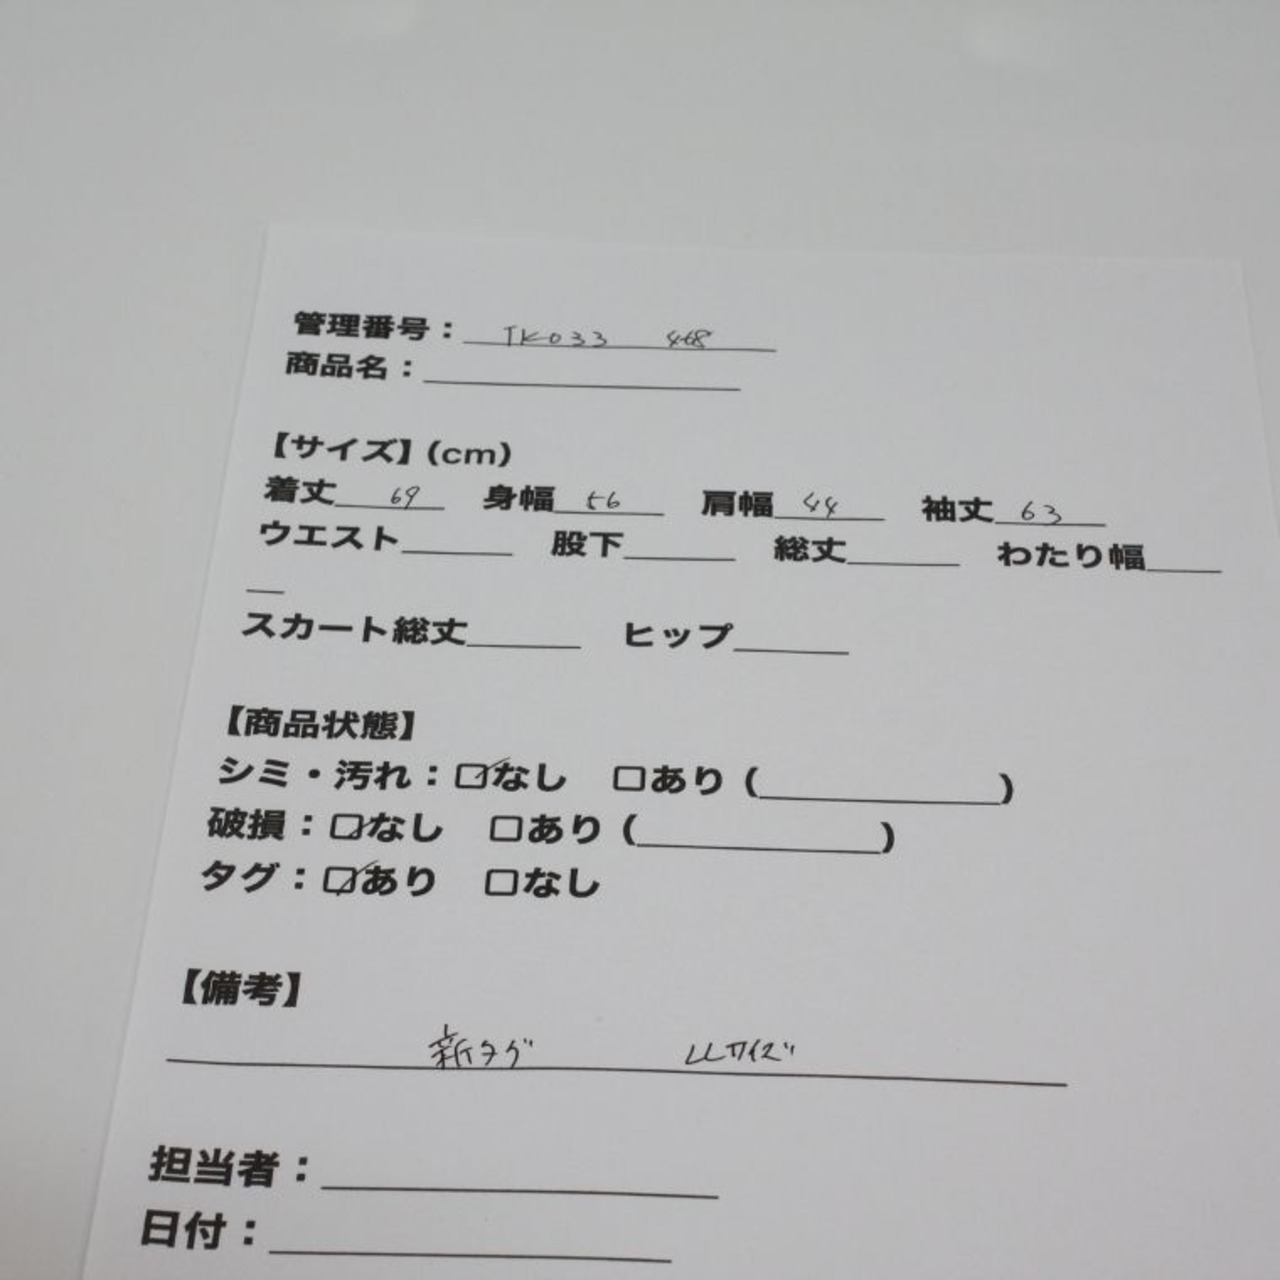 管理番号：TK033 468
商品名：
【サイズ】(cm)
着丈 69 身幅 56 肩幅 44 袖丈 63
ウエスト 股下 総丈 わたり幅
スカート総丈 ヒップ
【商品状態】
シミ・汚れ：☑なし □あり（ ）
破損：☑なし □あり（ ）
タグ：☑あり □なし
【備考】
新タグ LLサイズ
担当者：
日付：